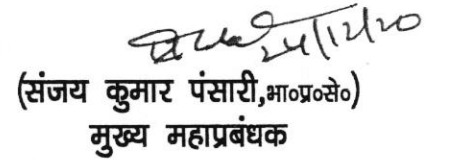 24/12/20
(संजय कुमार पंसारी,भा०प्र०से०)
मुख्य महाप्रबंधक